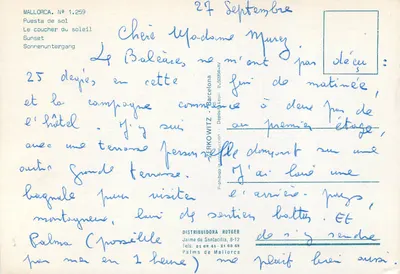 MALLORCA. Nº 1.259
Puesta de sol
Le coucher du soleil
Sunset
Sonnenuntergang
27 Septembre
Chère Madame
Les Baléares ne m'ont pas déçu :
25 degrés en cette fin de matinée,
et la campagne commence à deux pas de
l'hôtel. J'y suis au premier étage,
avec une terrasse personnelle donnant sur une
autre grande terrasse. J'ai loué une
bagnole pour visiter l'arrière-pays,
montagneux, loin des sentiers battus. Et
Palma (possible de s'y rendre
par mer en 1 heure) me plaît bien aussi.
Barcelona
DISTRIBUIDORA ROTGER
Palma de Mallorca